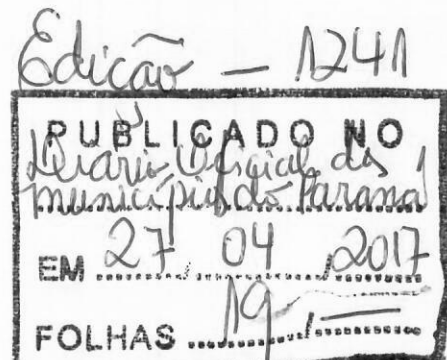 Edição - 1241
PUBLICADO NO
Diário Oficial dos
municípios do Paraná
EM 27 04 2017
FOLHAS 19 / —